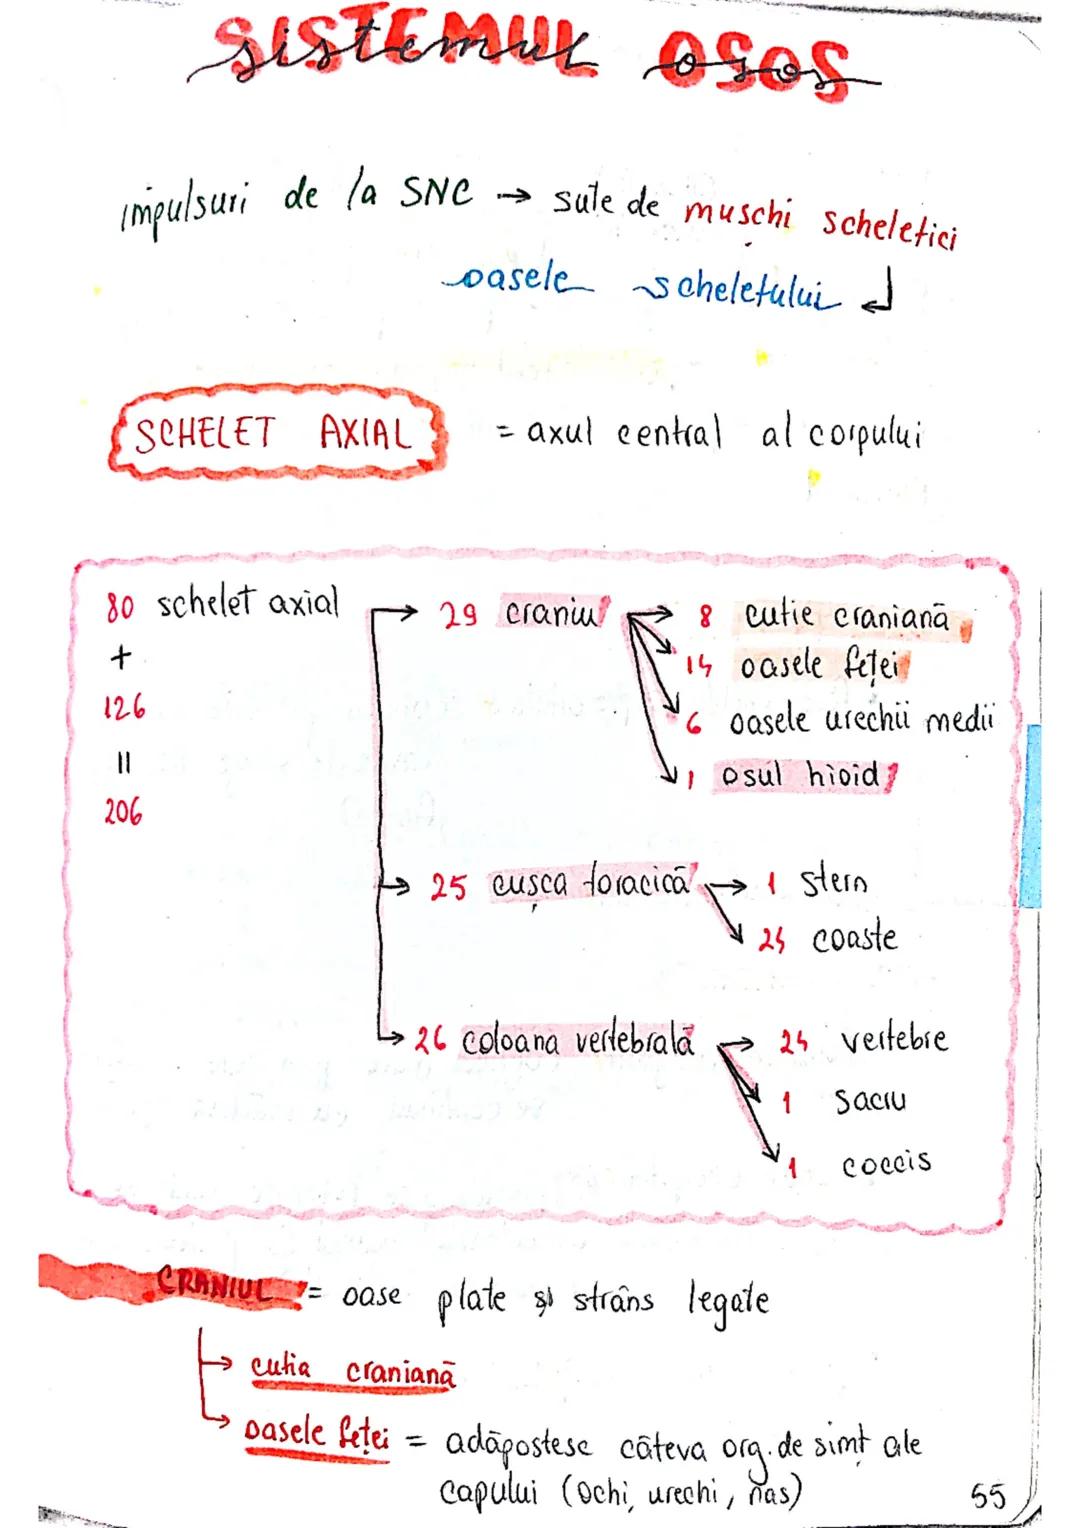 SISTEMUL OSOS
impulsuri de la SNC → sute de muschi scheletici
oasele scheletului ↲
SCHELET AXIAL = axul central al corpului
80 schelet axial → 29 craniu → 8 cutie craniană
+ 14 oasele feței
126 6 oasele urechii medii
= 1 osul hioid
206
→ 25 cușca toracică → 1 stern
24 coaste
→ 26 coloana vertebrală → 24 vertebre
1 sacru
1 coccis
CRANIUL = oase plate și strâns legate
→ cutia craniană
→ oasele feței = adăpostesc câteva org. de simț ale
capului (ochi, urechi, nas)
55